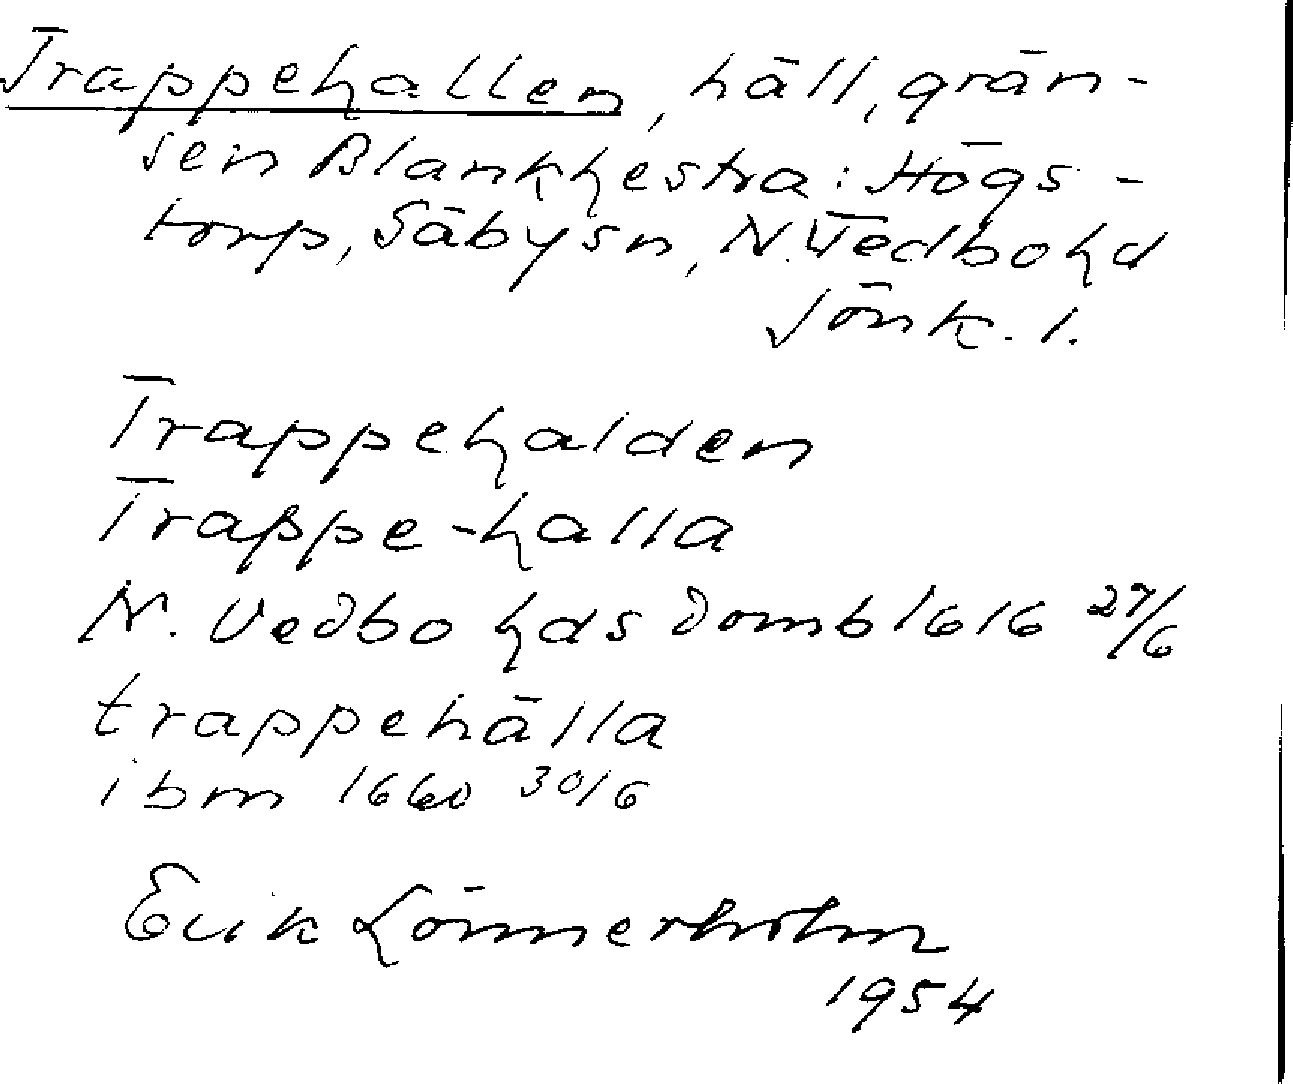 Trappehallen, häll, grän-
sen Blankhestra: Högs-
torp, Säbysn, N. Vedbohd
Jönk. l.
Trappehalden
Trappe-halla
N. Vedbo hds domb 1616 27/6
trappehälla
ibm 1660 30/6
Erik Lönnerholm
1954